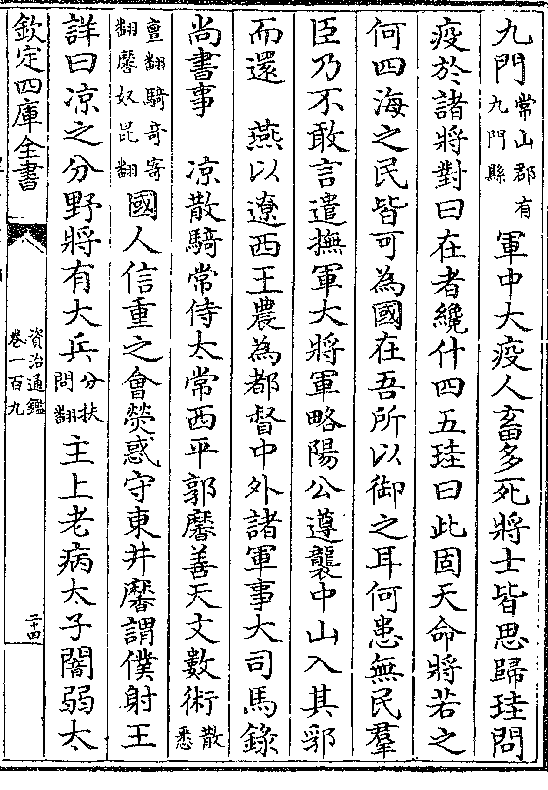 九門常山郡有九門縣軍中大疫人畜多死將士皆思歸珪問
疫於諸將對曰在者纔什四五珪曰此固天命將若之
何四海之民皆可為國在吾所以御之耳何患無民羣
臣乃不敢言遣撫軍大將軍略陽公遵襲中山入其郛
而還　燕以遼西王農為都督中外諸軍事大司馬錄
尚書事　凉散騎常侍太常西平郭黁善天文數術散悉
亶翻騎奇寄翻黁奴昆翻國人信重之會熒惑守東井黁謂僕射王
詳曰凉之分野將有大兵分扶問翻主上老病太子闇弱太
欽定四庫全書
資治通鑑
卷一百九
二十四